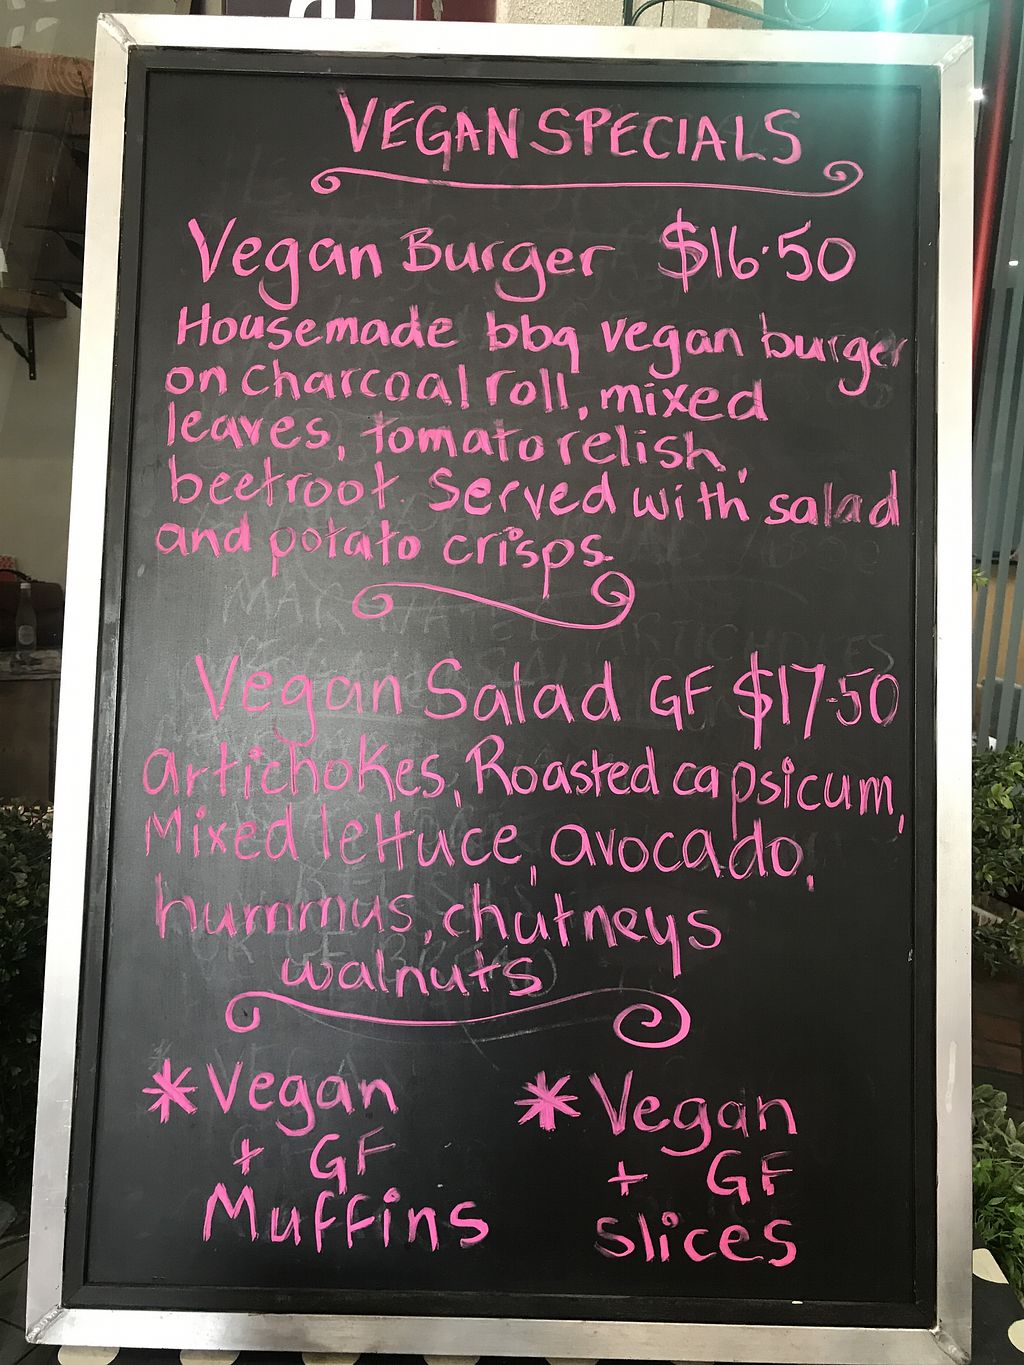 VEGAN SPECIALS
Vegan Burger $16.50
Housemade bbq vegan burger
on charcoal roll, mixed
leaves, tomato relish,
beetroot. Served with salad
and potato crisps.
Vegan Salad GF $17.50
Artichokes, Roasted capsicum,
Mixed lettuce, avocado,
hummus, chutneys
walnuts
* Vegan
+ GF
Muffins
* Vegan
+ GF
slices